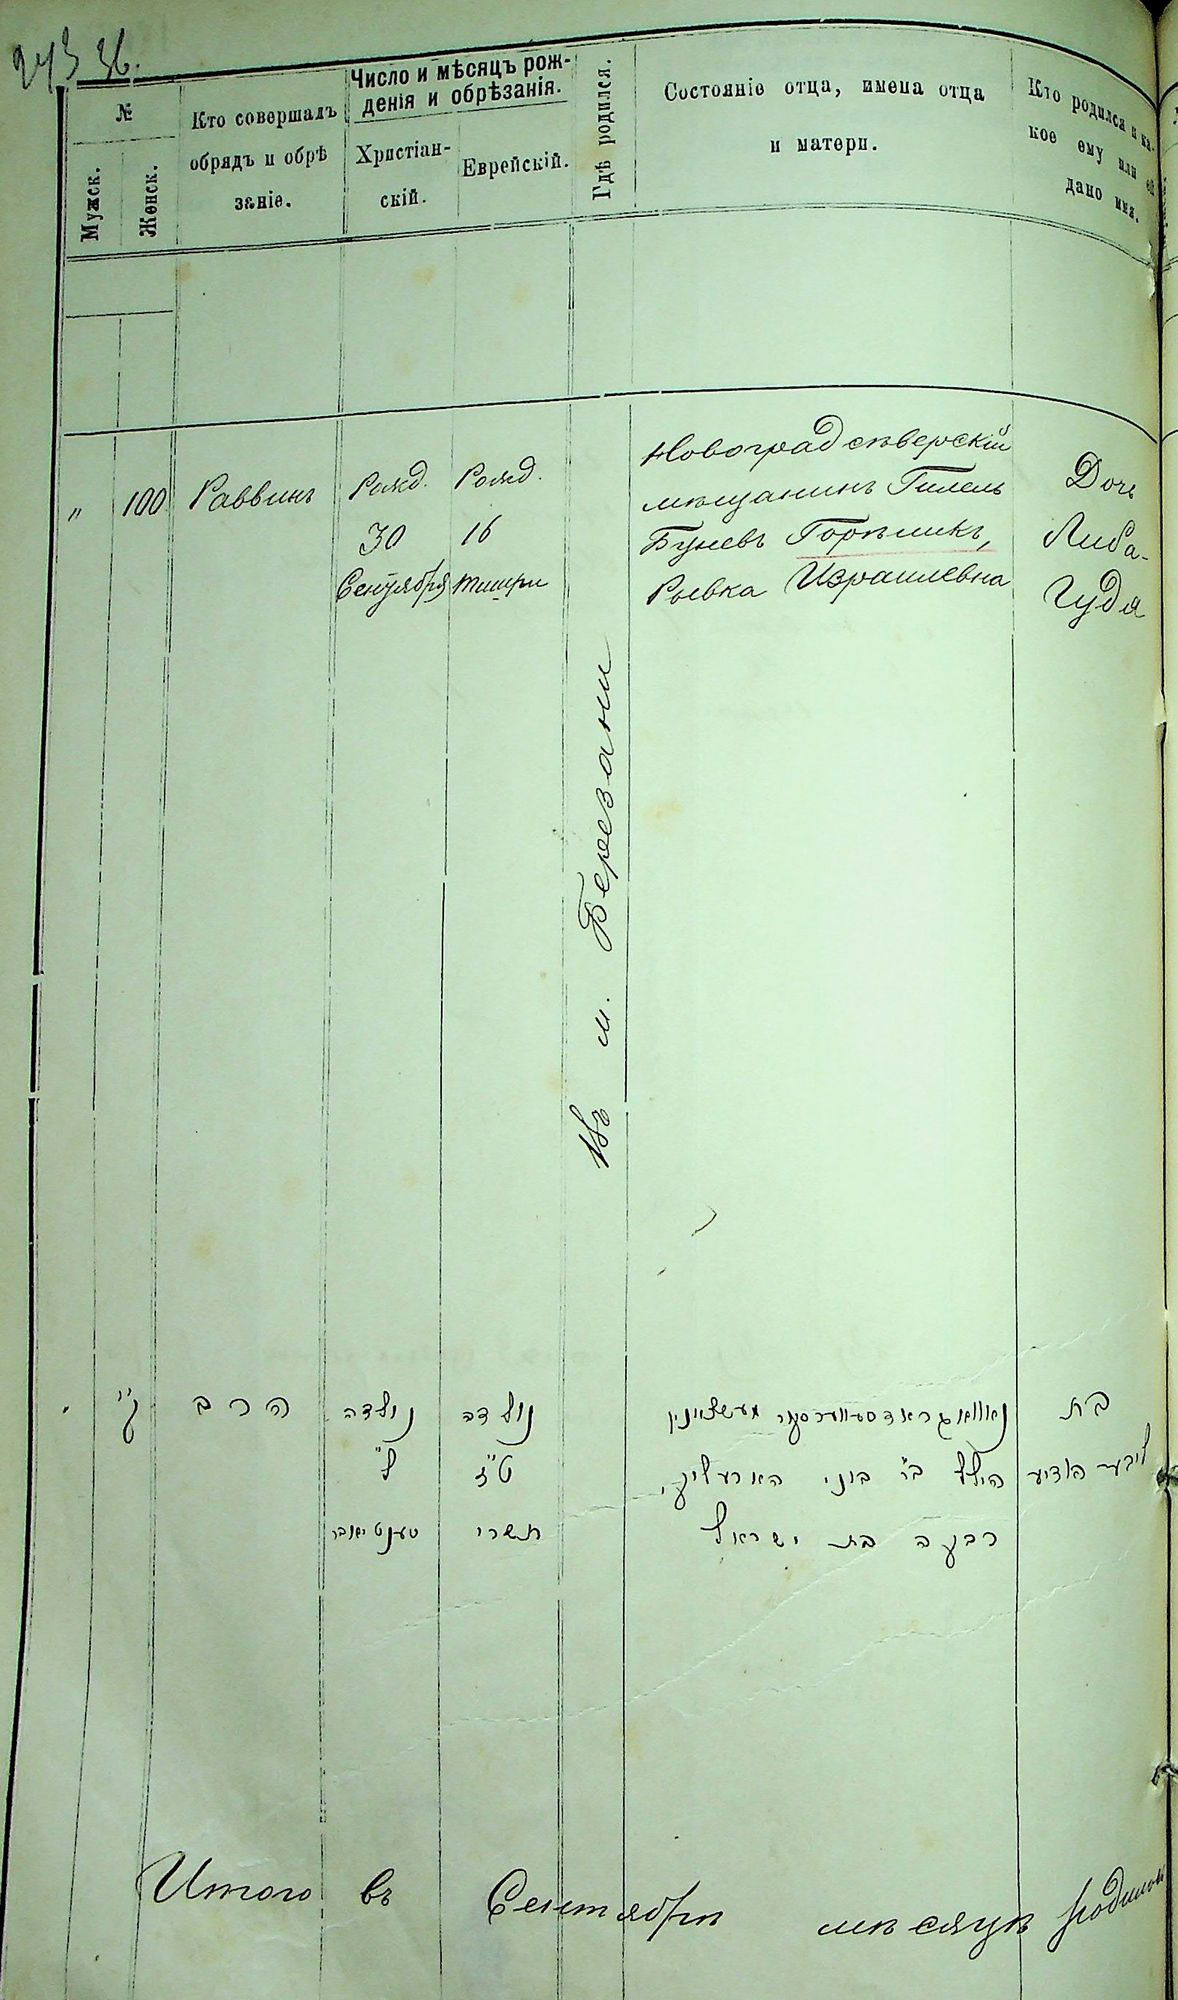 243 36.
№
Мужск.
Женск.
Кто совершалъ
обрядъ и обрѣ
заніе.
Число и мѣсяцъ рож-
денія и обрѣзанія.
Христіан-
скій.
Еврейскій.
Гдѣ родился.
Состояніе отца, имена отца
и матери.
Кто родился и ка-
кое ему или ей
дано имя.
„ 100 Раввинъ
Рожд.
30
Сентября
Рожд.
16
тишри
въ м. Березани
Новоград сѣверскій
мѣщанинъ Гилель
Буневъ Горѣликъ,
Рывка Израилевна
Дочь
Либа-
Гудя
ק"
הרב
נולדה
ל"
סענטיאבר
נולדה
ט"ז
תשרי
נאוואגראדסעווערסקער מעשצאנין
הילל ב"ר בוני הארעליק,
רבקה בת ישראל
בת
ליבע הודיע
Итого въ Сентябрѣ мѣсяцѣ родилось